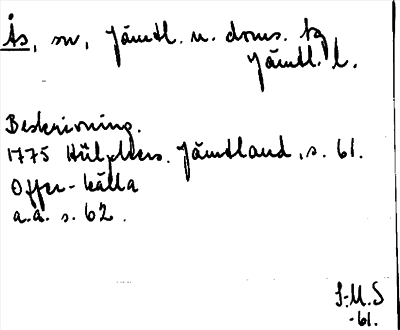 Ås, sn, Jämtl. n. doms. tg
Jämtl. l.
Beskrivning.
1775 Hülphers. Jämtland, s. 61.
Offer-källa
a.a. s. 62.
S-M.S
-61.